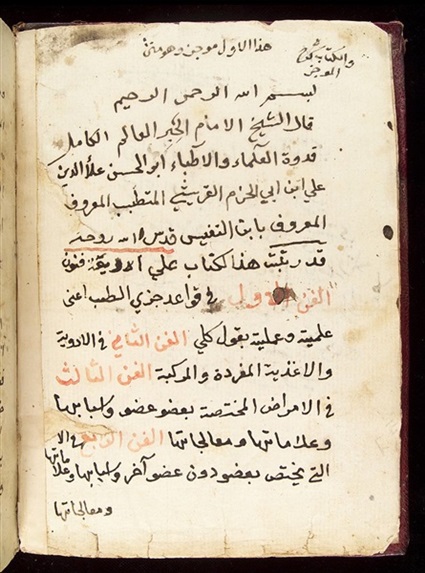 هذا الاول موجز وهو متن
والكتاب شرح
الموجز
بسم الله الرحمن الرحيم
قال الشيخ الامام الحبر العالم الكامل
قدوة العلماء والاطباء ابو الحسن علاء الدين
علي ابن ابي الحزم القرشي المتطبب المعروف
المعروف بابن النفيس قدس الله روحه
قد رتبت هذا كتاب علي اربعة فنون
الفن الاول في قواعد جزي الطب اعني
علمية وعملية بقول كلي الفن الثاني في الادوية
والاغذية المفردة والمركبة الفن الثالث
في الامراض المختصة بعضو عضو واسبابها
وعلاماتها ومعالجاتها الفن الرابع في الا
التي يختص بعضو دون عضو آخر واسبابها وعلاماتها
ومعالجاتها